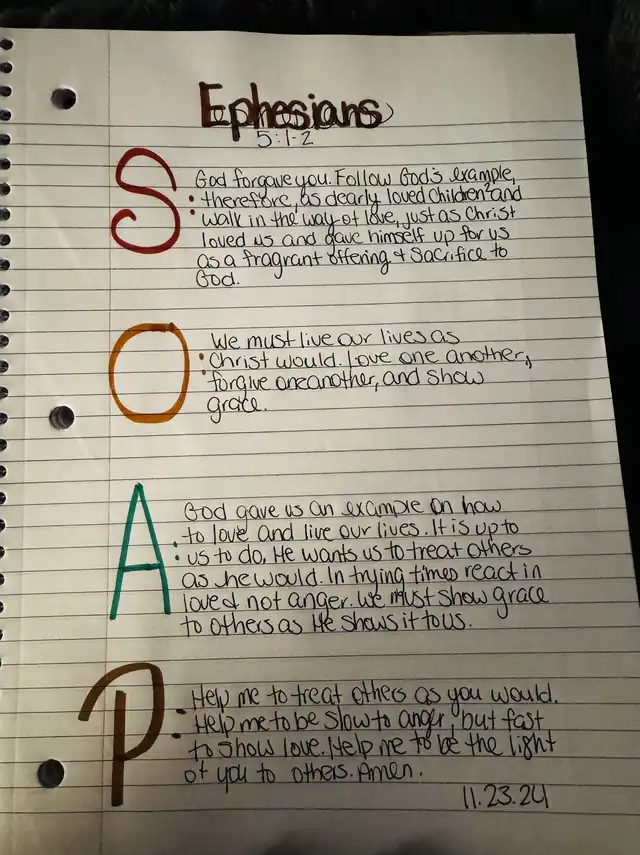 Ephesians
5:1-2
S: God forgave you. Follow God's example,
therefore, as dearly loved children ² and
walk in the way of love, just as Christ
loved us and gave himself up for us
as a fragrant offering + sacrifice to
God.
O: We must live our lives as
Christ would. Love one another,
forgive oneanother, and show
grace.
A: God gave us an example on how
to love and live our lives. It is up to
us to do. He wants us to treat others
as he would. In trying times react in
love & not anger. We must show grace
to others as He shows it to us.
P: Help me to treat others as you would.
Help me to be slow to anger, but fast
to show love. Help me to be the light
of you to others. Amen.
11.23.24